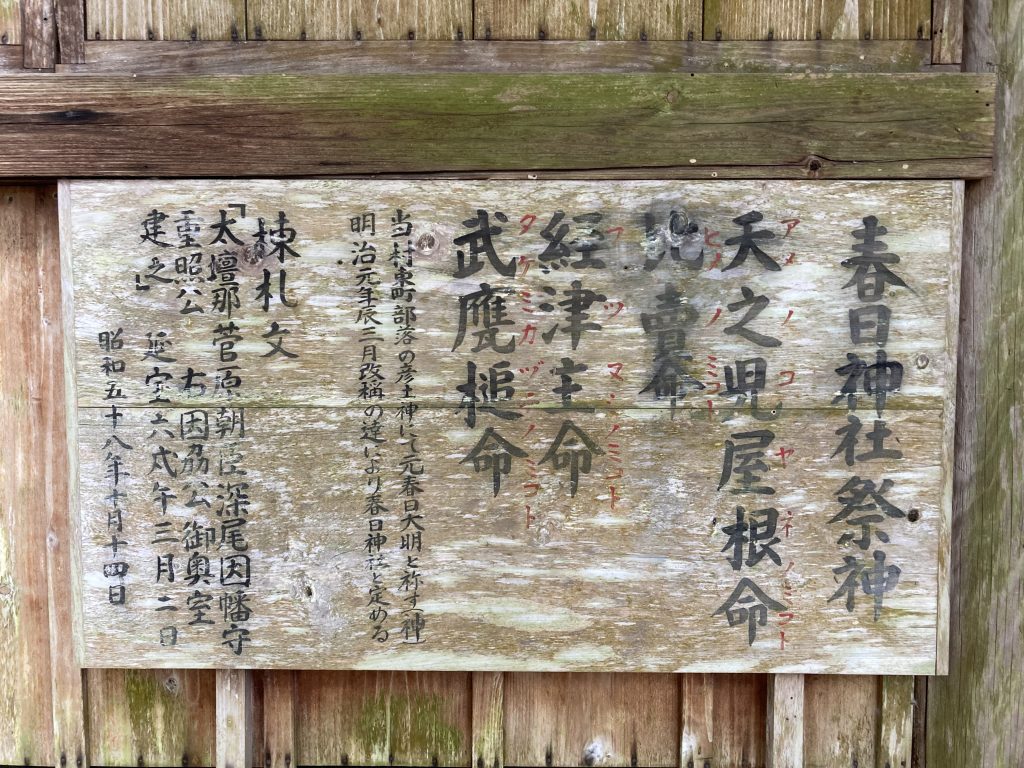 春日神社祭神
天之児屋根命
アメノコヤネノミコト
比売命
ヒメノミコト
経津主命
フツヌシノミコト
武甕槌命
タケミカヅチノミコト
当村東町部落の産土神にて元春日大明と称す「神」
明治元年辰三月改称の達により春日神社と定める
棟札文
「太壇那菅原朝臣深尾因幡守
重照公 右因幡公御奥室
建之」 延宝六戊午三月二日
昭和五十八年十月十四日